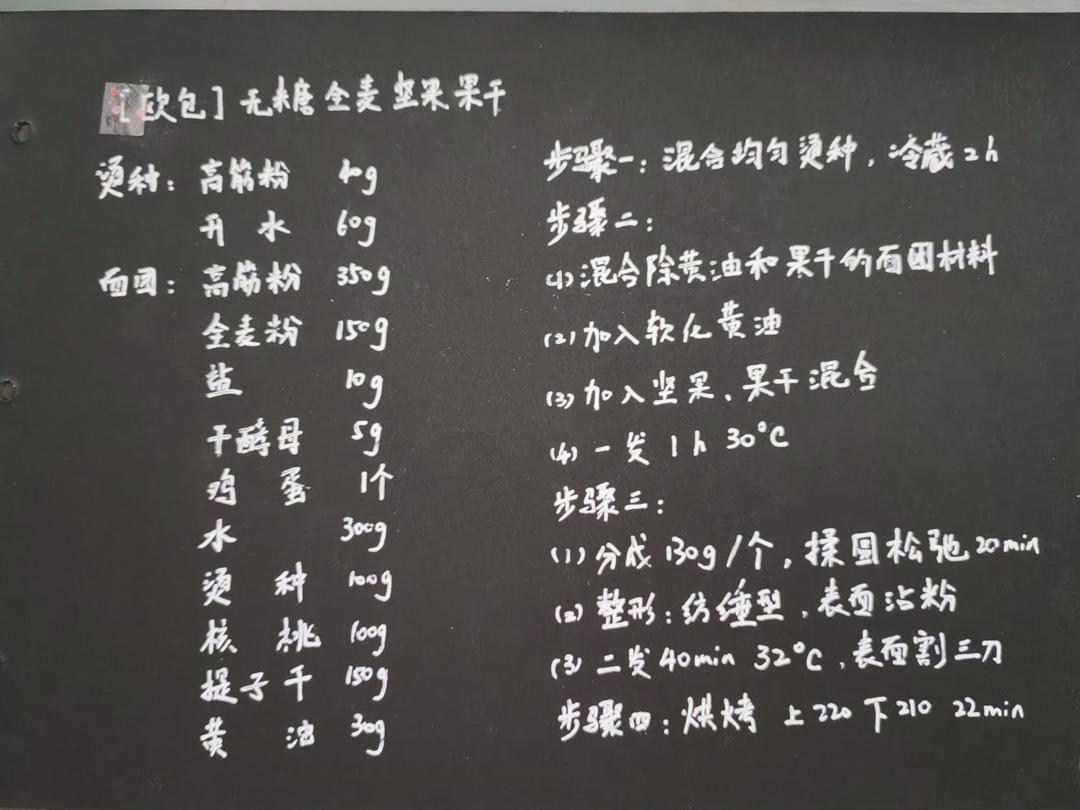 [欧包] 无糖全麦坚果果干
烫种：高筋粉 40g
开水 60g
面团：高筋粉 350g
全麦粉 150g
盐 10g
干酵母 5g
鸡蛋 1个
水 300g
烫种 100g
核桃 100g
提子干 150g
黄油 30g
步骤一：混合均匀烫种，冷藏2h
步骤二：
(1)混合除黄油和果干的面团材料
(2)加入软化黄油
(3)加入坚果、果干混合
(4)一发 1h 30°C
步骤三：
(1)分成130g/个，揉圆松弛20min
(2)整形：纺缍型，表面沾粉
(3)二发40min 32°C，表面割三刀
步骤四：烘烤 上220 下210 22min